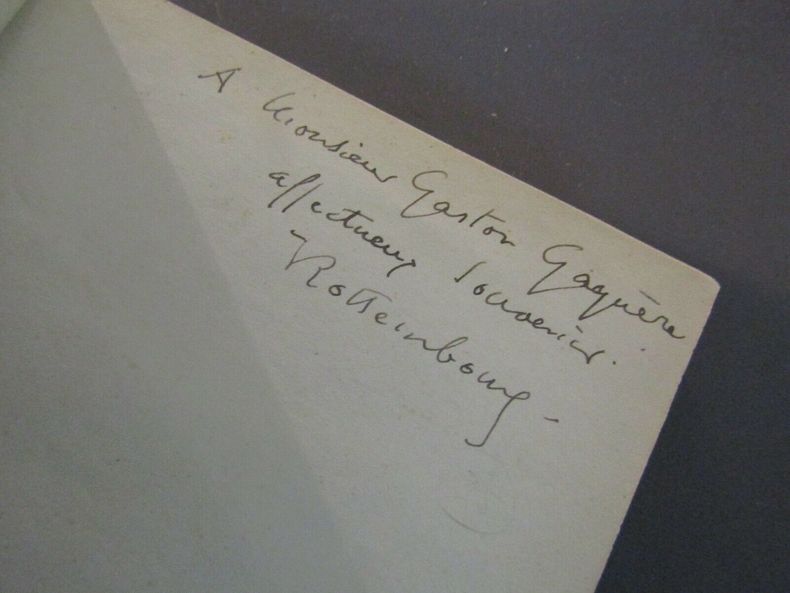 A Monsieur Gaston Gaquère
affectueux souvenir.
Rottembourg -